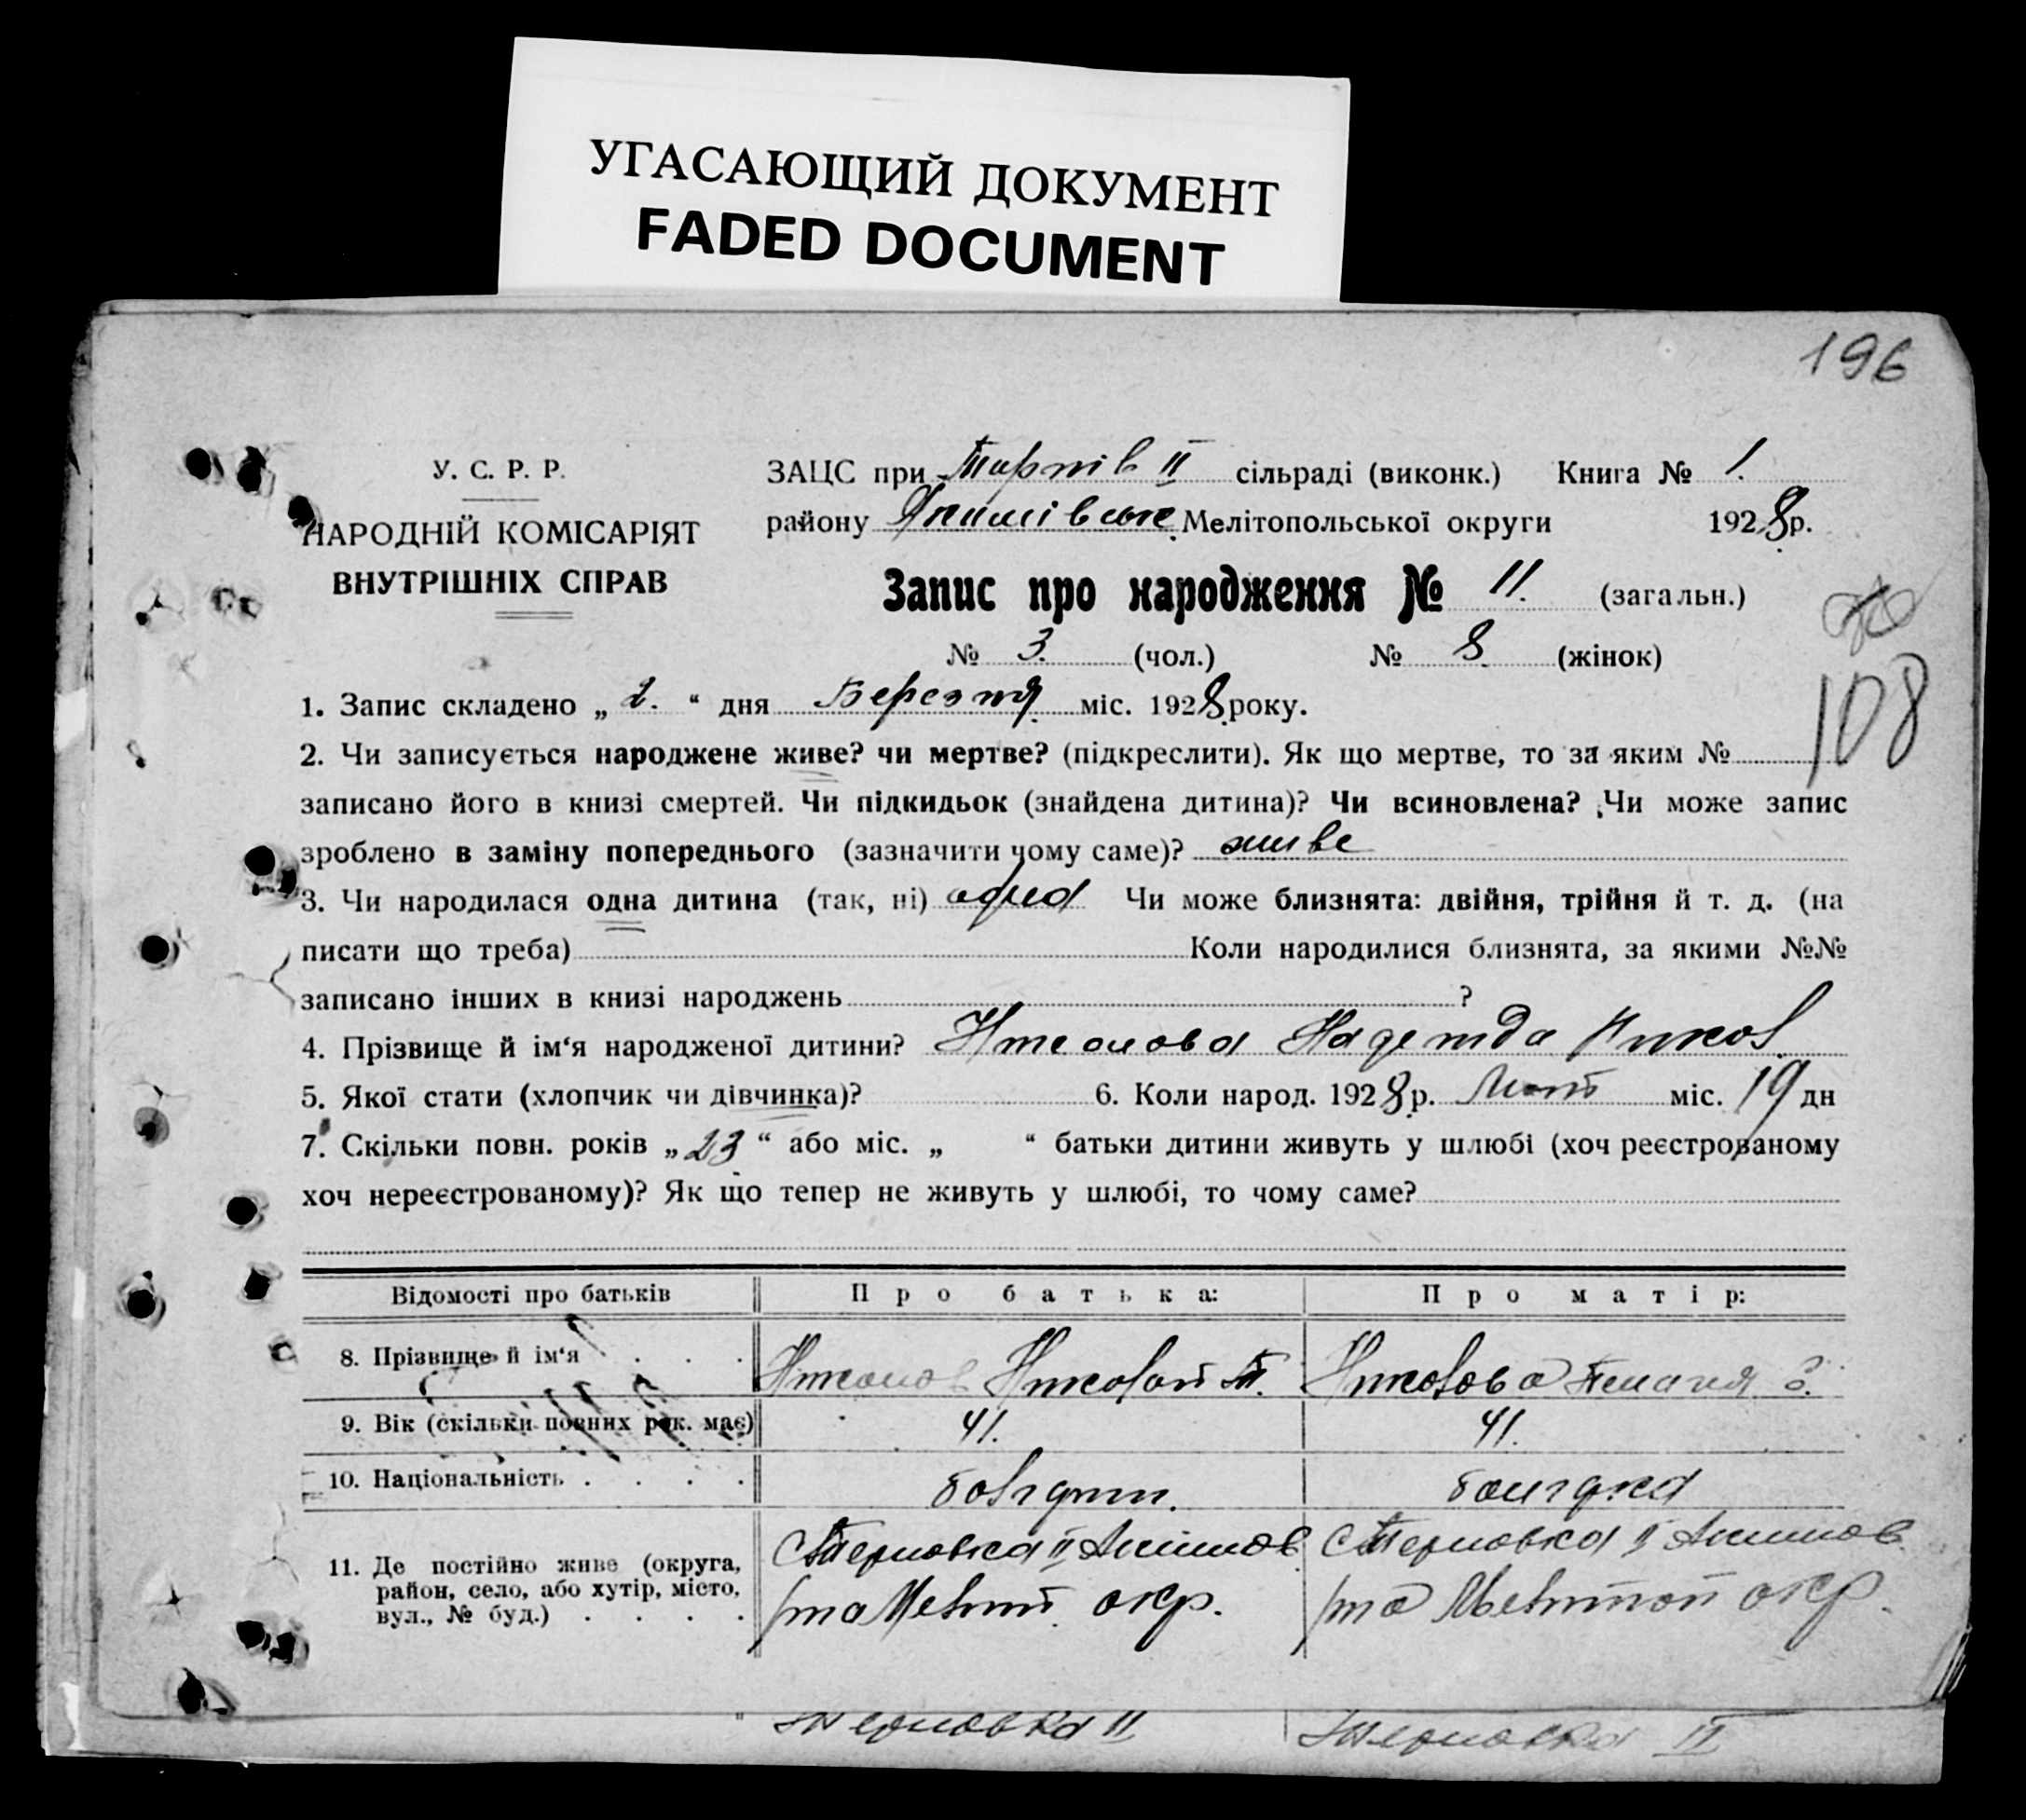 УГАСАЮЩИЙ ДОКУМЕНТ
FADED DOCUMENT
196
У. С. Р. Р.
НАРОДНІЙ КОМІСАРІЯТ
ВНУТРІШНІХ СПРАВ
ЗАЦС при II сільраді (виконк.) Книга № 1.
району Мелітопольської округи 1928 р.
Запис про народження № 11. (загальн.)
№ 3. (чол.) № 8. (жінок)
108
1. Запис складено „ 2. “ дня Березня міс. 1928 року.
2. Чи записується народжене живе? чи мертве? (підкреслити). Як що мертве, то за яким №
записано його в книзі смертей. Чи підкидьок (знайдена дитина)? Чи всиновлена? Чи може запис
зроблено в заміну попереднього (зазначити чому саме)? живе
3. Чи народилася одна дитина (так, ні) одна Чи може близнята: двійня, трійня й т. д. (на
писати що треба) Коли народилися близнята, за якими №№
записано інших в книзі народжень ?
4. Прізвище й ім‘я народженої дитини? Надежда
5. Якої стати (хлопчик чи дівчинка)? 6. Коли народ. 1928 р. Лют міс. 19 дн
7. Скільки повн. років „ 23 “ або міс. „ “ батьки дитини живуть у шлюбі (хоч реєстрованому
хоч нереєстрованому)? Як що тепер не живуть у шлюбі, то чому саме?
Відомості про батьків Про батька: Про матір:
8. Прізвище й ім‘я . . .
9. Вік (скільки повних рок. має) 41. 41.
10. Національність . . . . болгарин. болгарка
11. Де постійно живе (округа,
район, село, або хутір, місто,
вул., № буд.) . . . .
С Терновка II Акимов
р-на Меліт. окр.
С Терновка II Акимов.
р-на Мелітоп окр.
Терновка II Терновка II